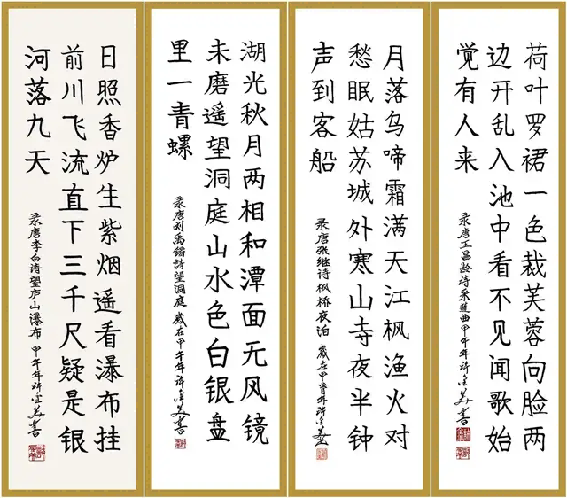 荷叶罗裙一色裁芙蓉向脸两
边开乱入池中看不见闻歌始
觉有人来
录唐王昌龄诗采莲曲甲午年许书
月落乌啼霜满天江枫渔火对
愁眠姑苏城外寒山寺夜半钟
声到客船
录唐张继诗枫桥夜泊 岁在甲午年许
湖光秋月两相和潭面无风镜
未磨遥望洞庭山水色白银盘
里一青螺
录唐刘禹锡诗望洞庭 岁在甲午年许书
日照香炉生紫烟遥看瀑布挂
前川飞流直下三千尺疑是银
河落九天
录唐李白诗望庐山瀑布 甲午年许书